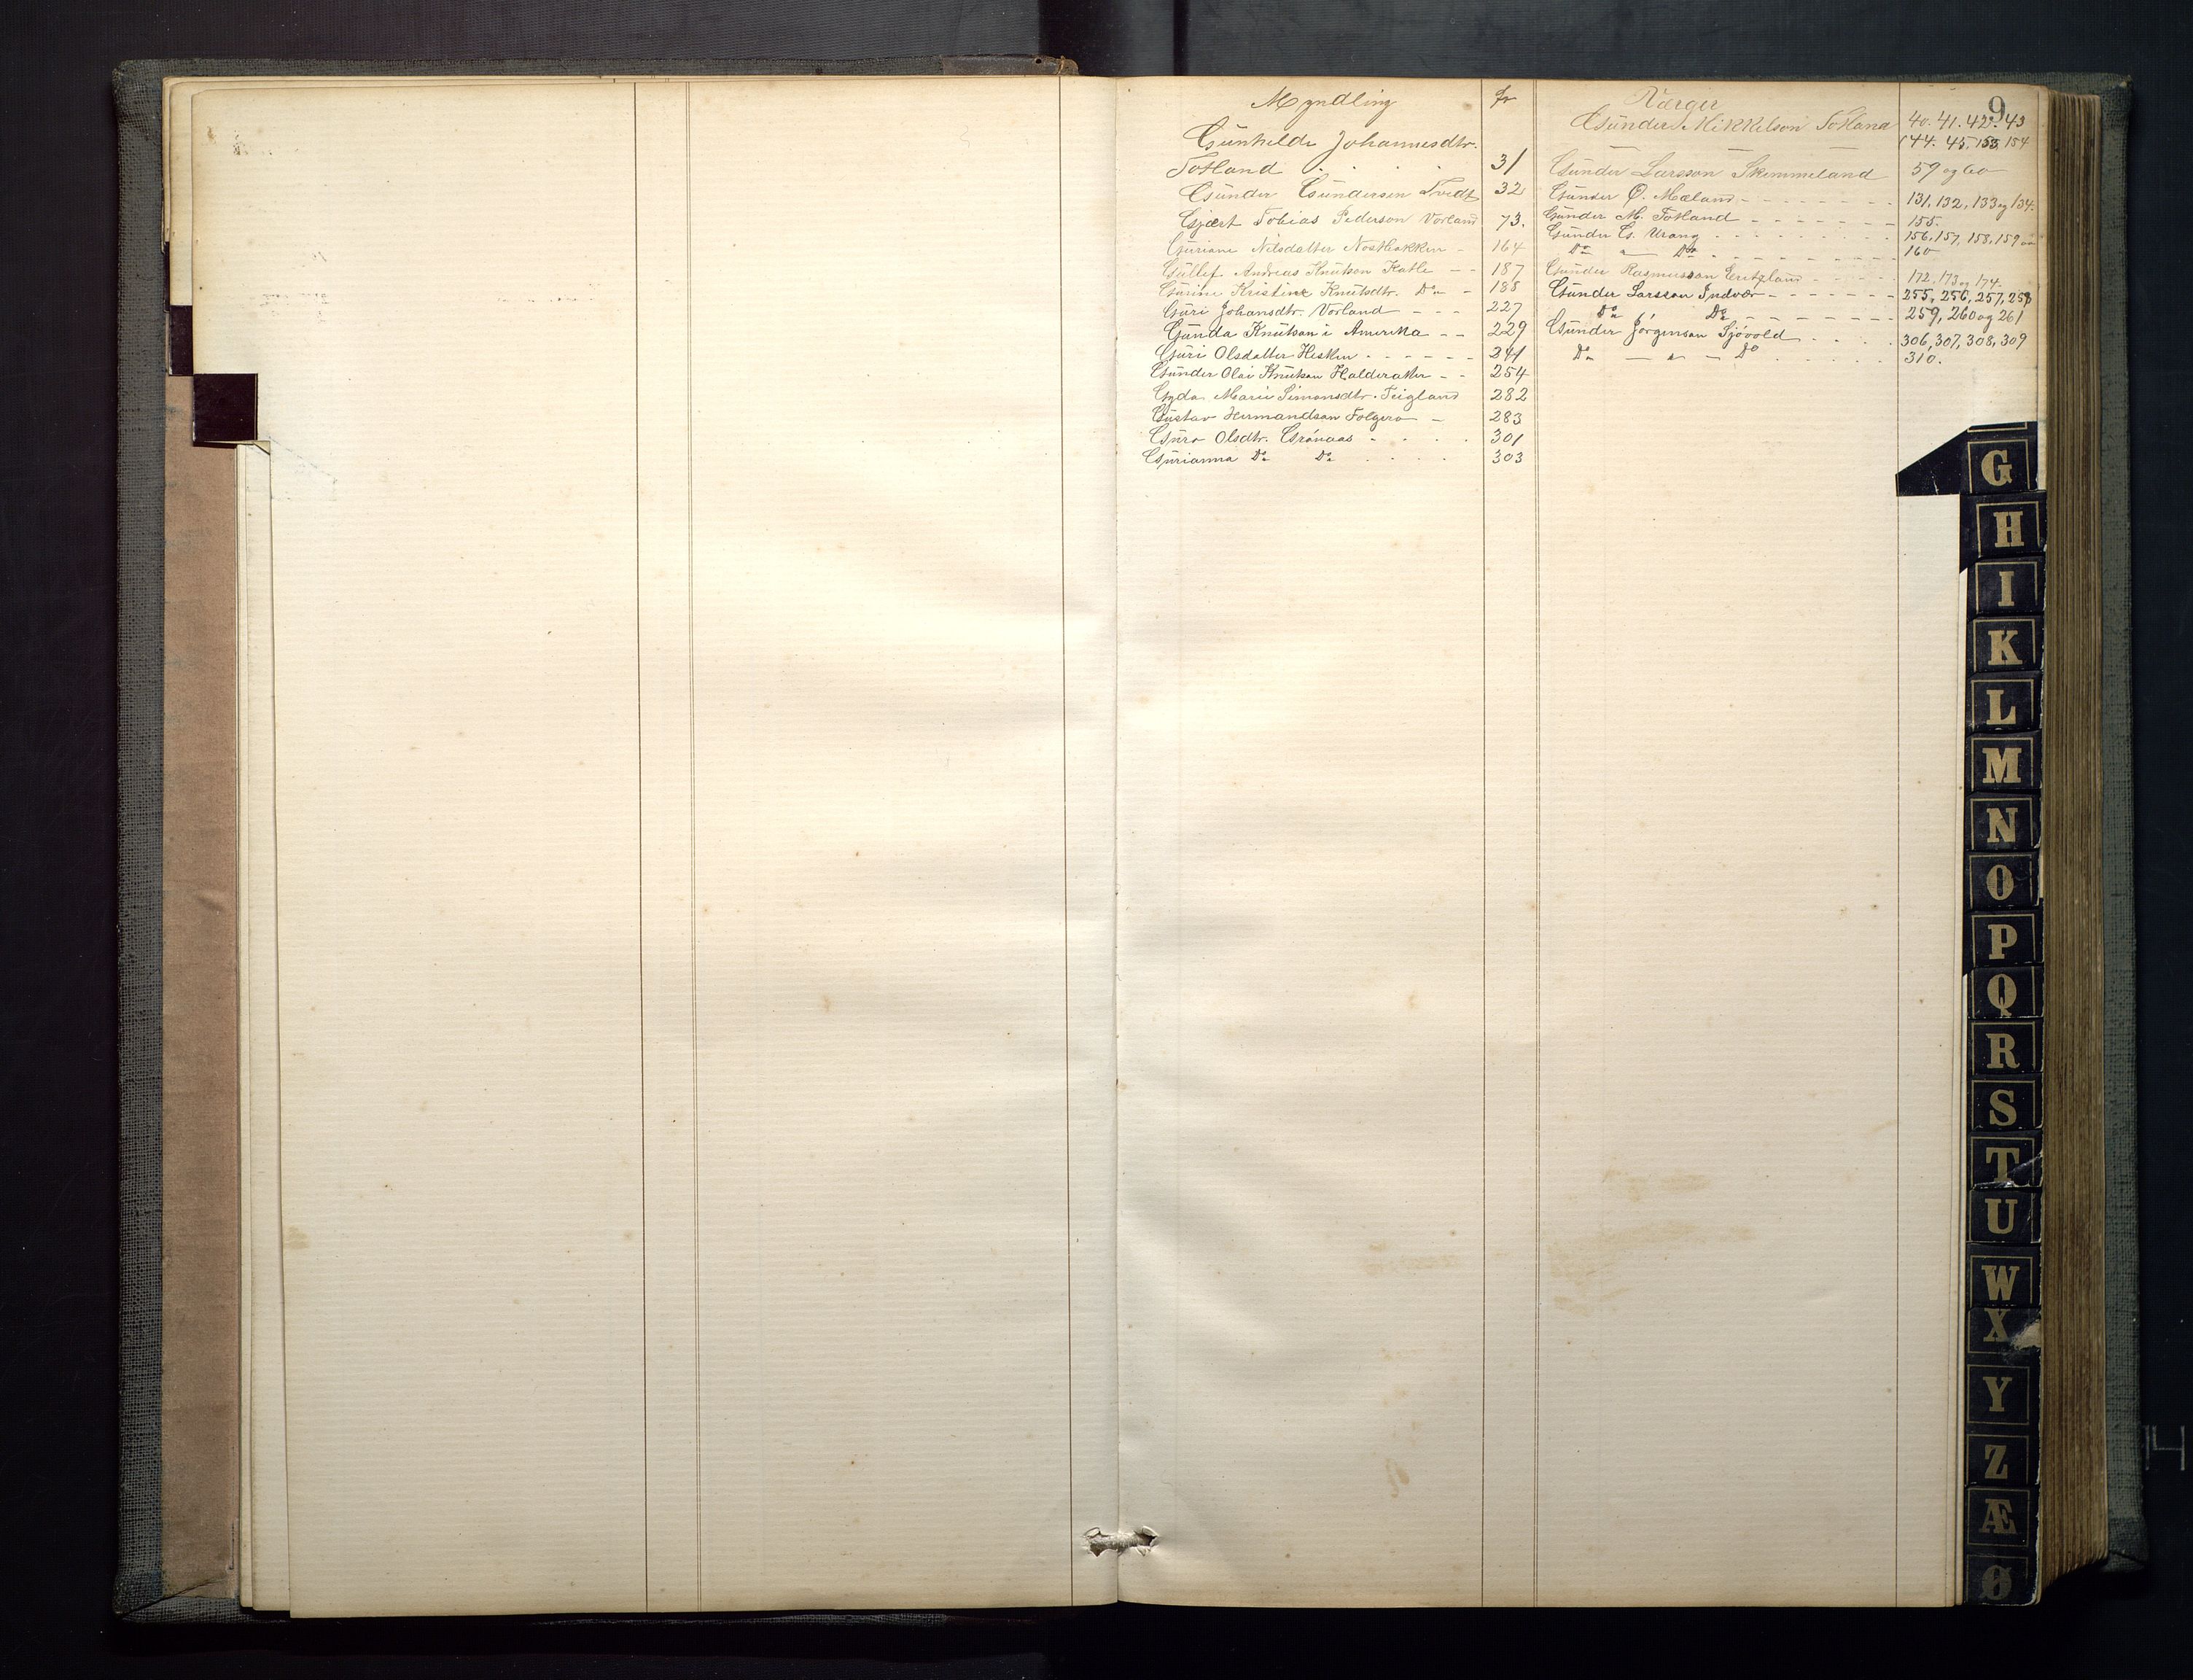 9
Myndling
fr
Værger
Gunhilde Johannesdtr.
Totland . . . . 31
Gunder Gundersen Tvedt 32
Gjert Tobias Pederson Vorland 73.
Guriane Nilsdatter Nostbakken - 164
Gullef Andreas Knutson Katle - - 187
Gurine Kristine Knutsdtr. Do - 188
Guri Johansdtr. Vorland - - - 227
Gunda Knutson i Amerika - - 229
Guri Olsdatter Hisken - - - - - - 241
Gunder Olai Knutson Halderaker - - 254
Gyda Marie Simonsdtr. Teigland 282
Gustav Hermandson Folgerø - 283
Guro Olsdtr. Grønaas - - . . 301
Gurianna Do Do . . . . 303
Gunder Mikkelson Totland 40. 41. 42. 43
(44. 45. 153, 154
Gunder Larsson Skimmeland 59 og 60
Gunder O. Mæland - - - - - - - - 131, 132, 133 og 134.
Gunder M. Totland - - - - - - 155.
Gunder G. Urang - - - - - - - - 156, 157, 158, 159 og
Do - Do - - - - - - - - 160
Gunder Rasmusson Eritzland - - - - - - 172, 173 og 174.
Gunder Larsson Indvær - - - - - - - 255, 256, 257, 258
Do Do - - - - - - - - 259, 260 og 261
Gunder Jørgenson Sjøvold . . . . 306, 307, 308, 309
Do - " - Do . . . . . 310.
G
H
I
K
L
M
N
O
P
Q
R
S
T
U
W
X
Y
Z
Æ
Ø